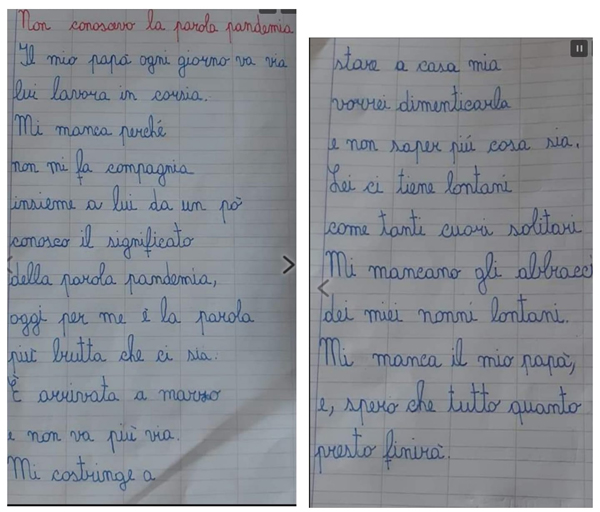 Non conoscevo la parola pandemia
Il mio papà ogni giorno va via
lui lavora in corsia.
Mi manca perché
non mi fa compagnia
insieme a lui da un pò
conosco il significato
della parola pandemia,
oggi per me é la parola
più brutta che ci sia.
È arrivata a marzo
e non va più via.
Mi costringe a
stare a casa mia
vorrei dimenticarla
e non saper più cosa sia.
Lei ci tiene lontani
come tanti cuori solitari
Mi mancano gli abbracci
dei miei nonni lontani.
Mi manca il mio papà,
e, spero che tutto quanto
presto finirà.